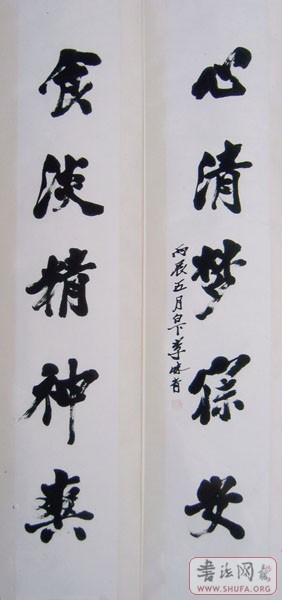 心清梦寐安
食淡精神爽
丙辰五月白下李味青
书法网
WWW.SHUFA.ORG